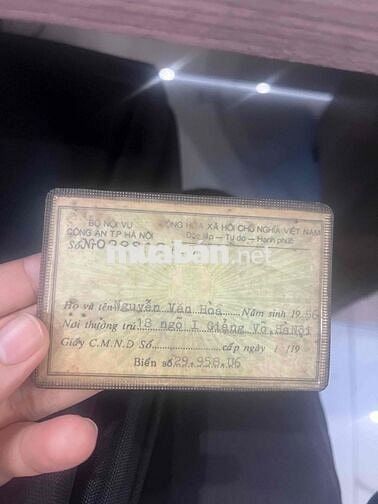 BỘ NỘI VỤ
CÔNG AN T.P HÀ NỘI
CỘNG HÒA XÃ HỘI CHỦ NGHĨA VIỆT NAM
Độc lập — Tự do — Hạnh phúc
Số
muaban.net
Họ và tên Nguyễn Văn Hòa Năm sinh 19.56
Nơi thường trú 18 ngõ 1 Giảng Võ, HàNội
Giấy C.M.N.D Số cấp ngày / /19
Biển số 29.958.06